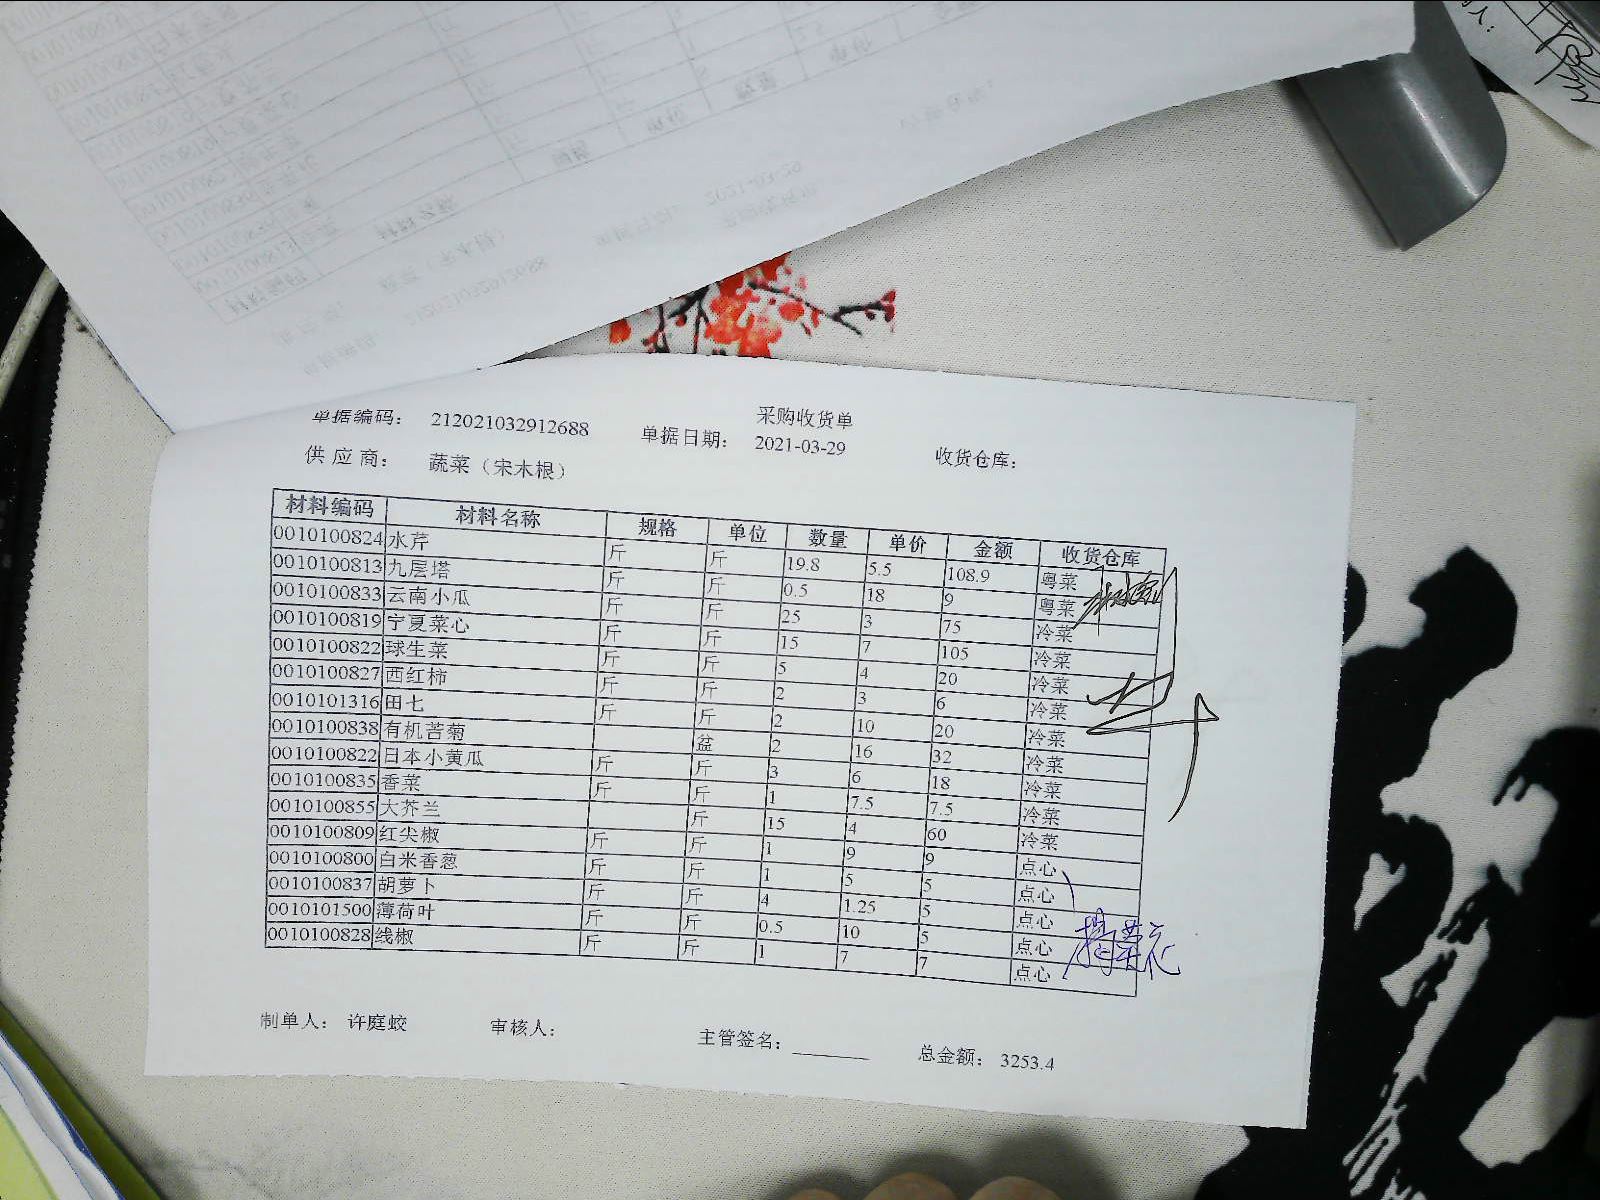 采购收货单
单据编码： 212021032912688 单据日期： 2021-03-29 收货仓库：
供应商： 蔬菜（宋木根）
材料编码 材料名称 规格 单位 数量 单价 金额 收货仓库
0010100824 水芹 斤 斤 19.8 5.5 108.9 粤菜
0010100813 九层塔 斤 斤 0.5 18 9 粤菜
0010100833 云南小瓜 斤 斤 25 3 75 冷菜
0010100819 宁夏菜心 斤 斤 15 7 105 冷菜
0010100822 球生菜 斤 斤 5 4 20 冷菜
0010100827 西红柿 斤 斤 2 3 6 冷菜
0010101316 田七 斤 斤 2 10 20 冷菜
0010100838 有机苦菊 盆 2 16 32 冷菜
0010100822 日本小黄瓜 斤 斤 3 6 18 冷菜
0010100835 香菜 斤 斤 1 7.5 7.5 冷菜
0010100855 大芥兰 斤 15 4 60 冷菜
0010100809 红尖椒 斤 斤 1 9 9 点心
0010100800 白米香葱 斤 斤 1 5 5 点心
0010100837 胡萝卜 斤 斤 4 1.25 5 点心
0010101500 薄荷叶 斤 斤 0.5 10 5 点心
0010100828 线椒 斤 斤 1 7 7 点心
制单人： 许庭蛟 审核人： 主管签名： 总金额： 3253.4